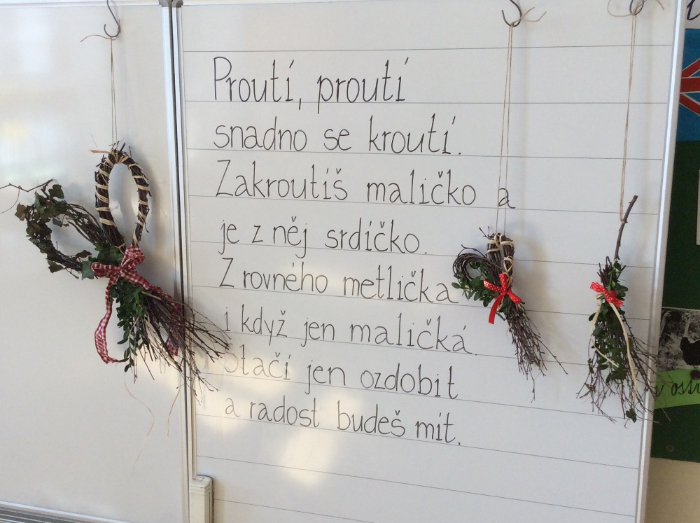 Proutí, proutí
snadno se kroutí.
Zakroutíš maličko a
je z něj srdíčko.
Z rovného metlička
i když jen maličká.
Stačí jen ozdobit
a radost budeš mít.